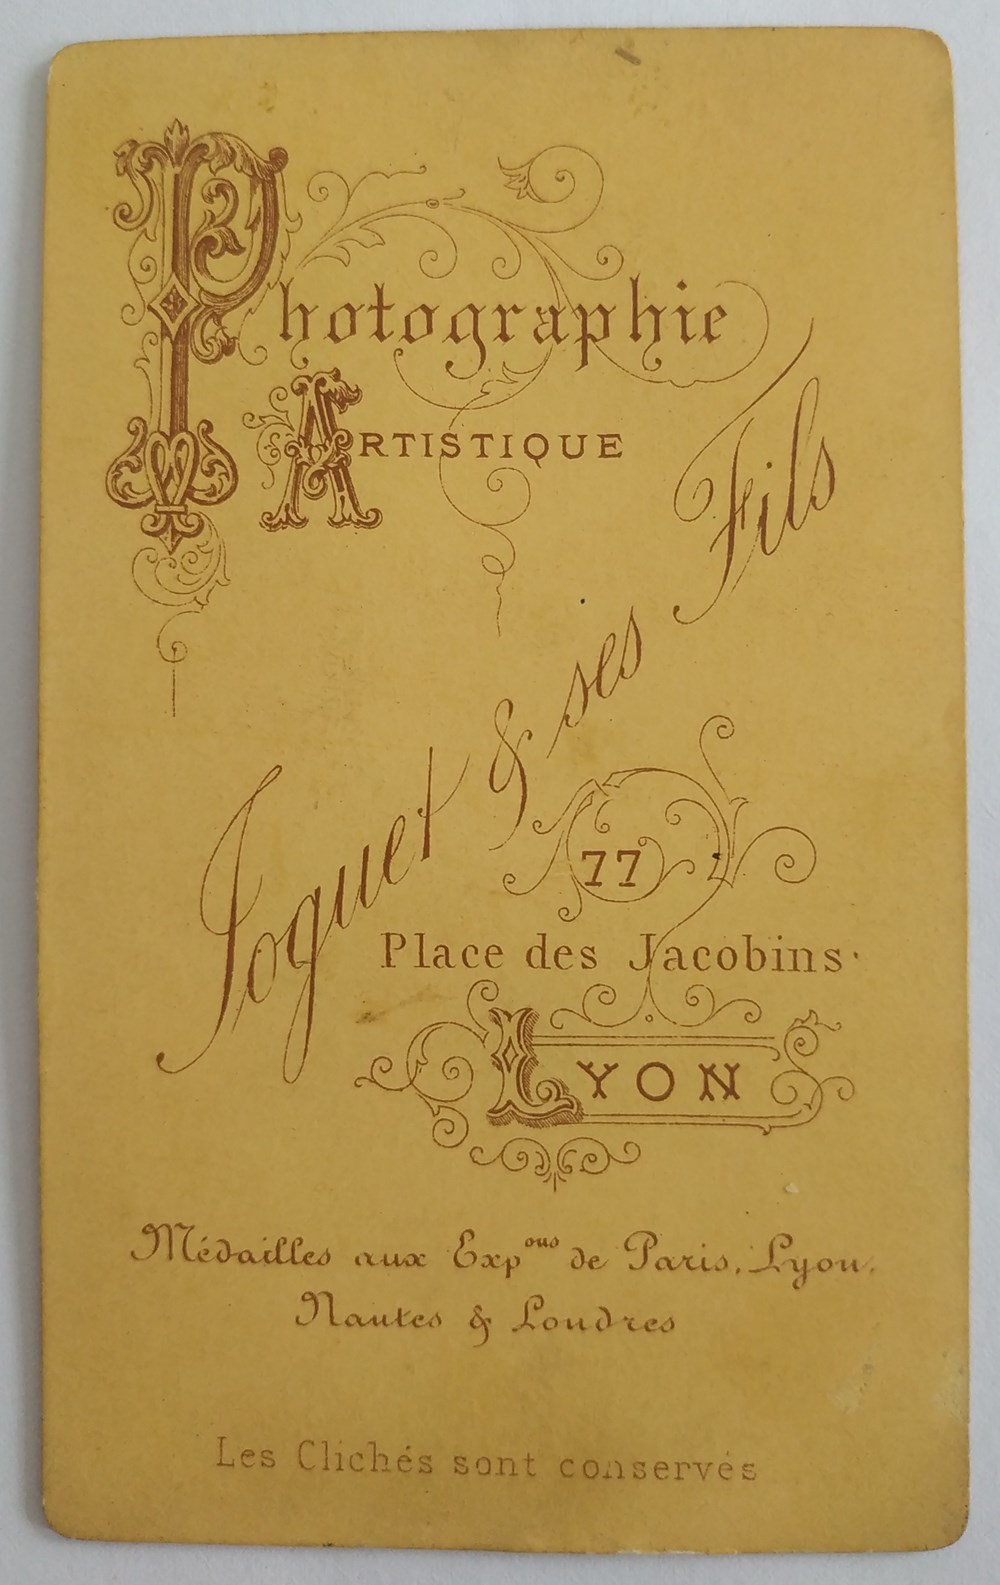 Photographie
Artistique
Joguet & ses Fils
77
Place des Jacobins.
Lyon
Médailles aux Expons de Paris, Lyon,
Nantes & Londres
Les Clichés sont conservés